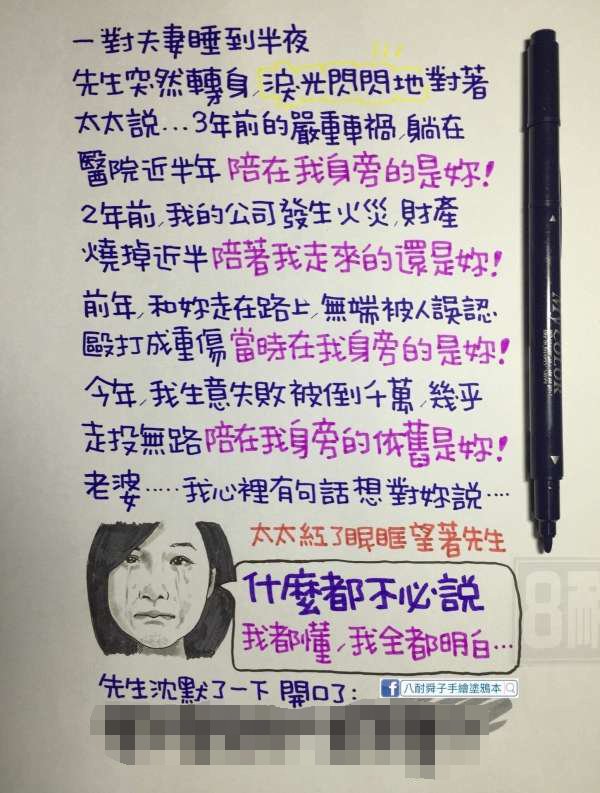 一對夫妻睡到半夜
先生突然轉身,淚光閃閃地對著
太太說...3年前的嚴重車禍,躺在
醫院近半年陪在我身旁的是妳!
2年前,我的公司發生火災,財產
燒掉近半陪著我走來的還是妳!
前年,和妳走在路上,無端被人誤認
毆打成重傷當時在我身旁的是妳!
今年,我生意失敗被倒千萬,幾乎
走投無路陪在我身旁的依舊是妳!
老婆.....我心裡有句話想對妳說....
太太紅了眼眶望著先生
什麼都不必說
我都懂,我全都明白...
先生沈默了一下開口了:
八耐舜子手繪塗鴉本
MY COLOR